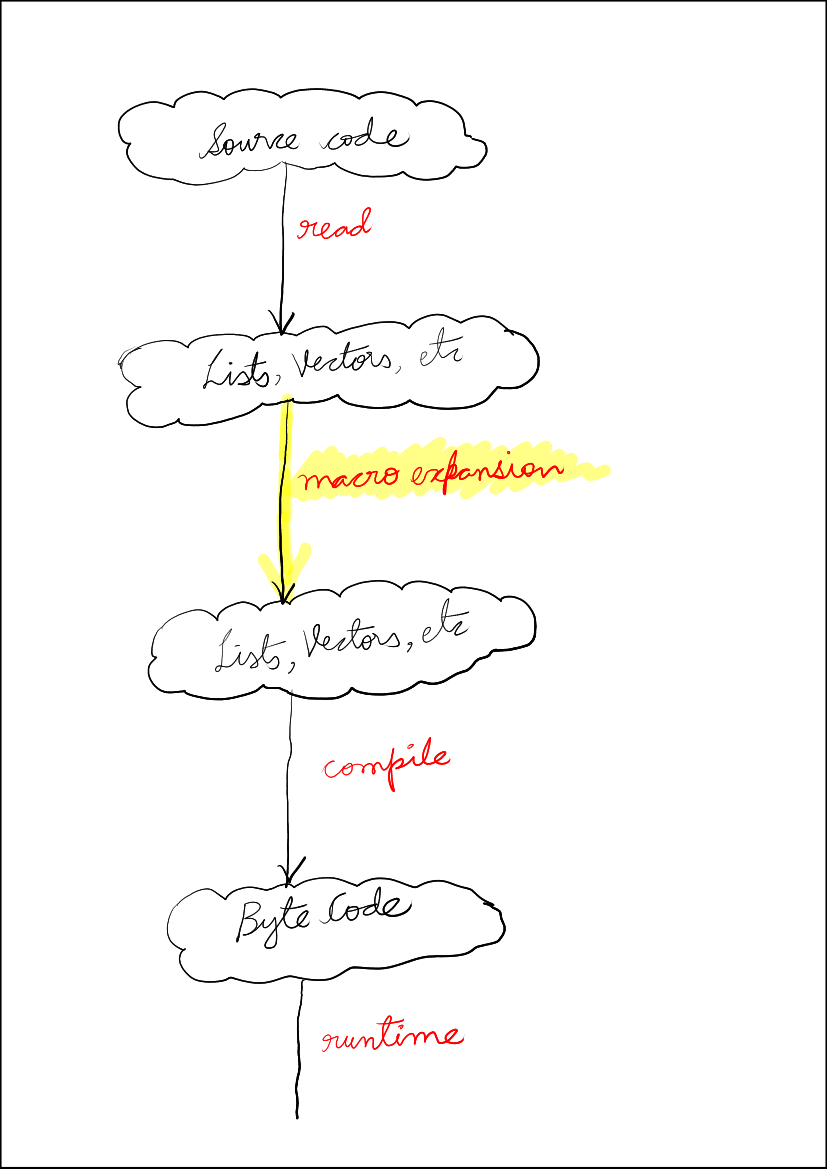 Source code
read
Lists, Vectors, etc
macro expansion
Lists, Vectors, etc
compile
Byte Code
runtime